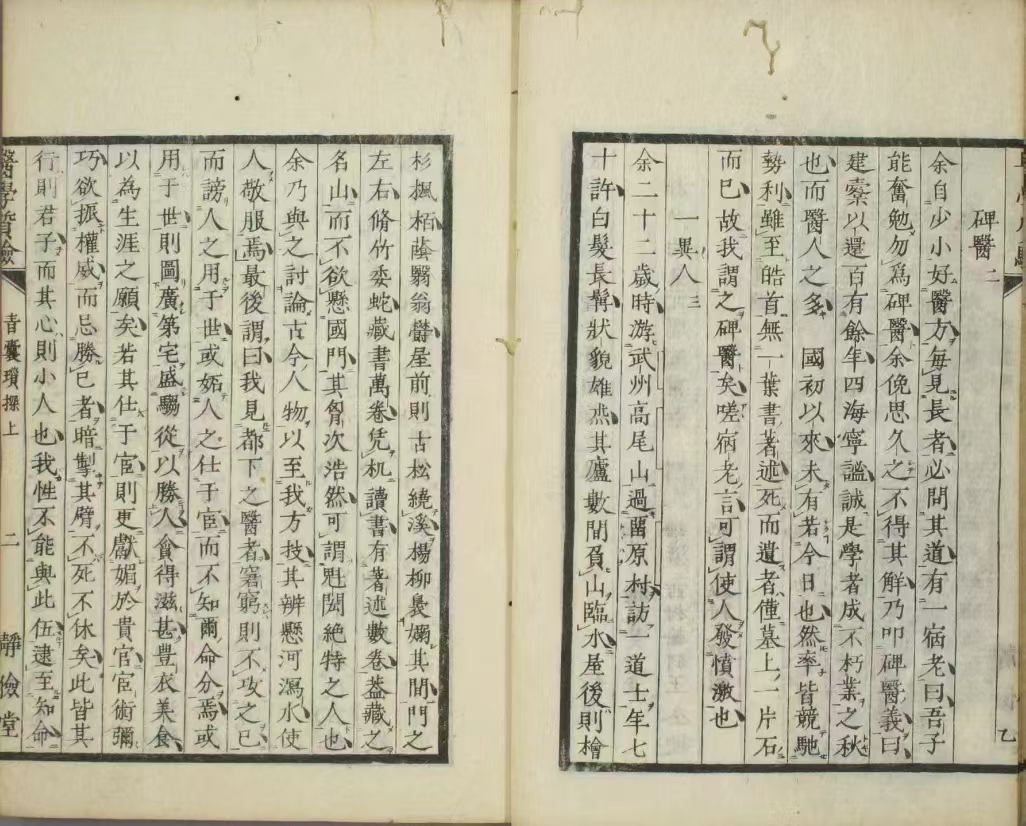 碑醫 二
余自少小好醫方毎見長者必問其道有一宿老曰吾子
能奮勉勿爲碑醫余俛思久之不得其解乃叩碑醫義曰
建櫜以還百有餘年四海寧謐誠是學者成不朽業之秋
也而醫人之多 國初以來未有若今日也然率皆競馳
勢利雖至皓首無一葉書著述死而遺者僅墓上一片石
而已故我謂之碑醫矣嗟宿老言可謂使人發憤激也
一異人 三
余二十二歲時游武州高尾山過畱原村訪一道士年七
十許白髮長髯狀貌雄烋其廬數間負山臨水屋後則檜
乙
杉楓栢蔭翳翁鬱屋前則古松繞溪楊柳裊嫋其間門之
左右脩竹委蛇藏書萬卷凭机讀書有著述數卷葢藏之
名山而不欲懸國門其胷次浩然可謂魁閎絶特之人也
余乃與之討論古今人物以至我方技其辨懸河瀉水使
人敬服焉最後謂曰我見都下之醫者窘窮則不攻之已
而謗人之用于世或妬人之仕于宦而不知爾命分焉或
用于世則圖廣第宅盛騶從以勝人食得滋甚豊衣美食
以為生涯之願矣若其仕于宦則更獻媚於貴官宦術彌
巧欲振權威而忌勝己者暗掣其臂不死不休矣此皆其
行則君子而其心則小人也我性不能與此伍逮至知命
醫學質驗
青囊瑣探上
二
靜儉堂